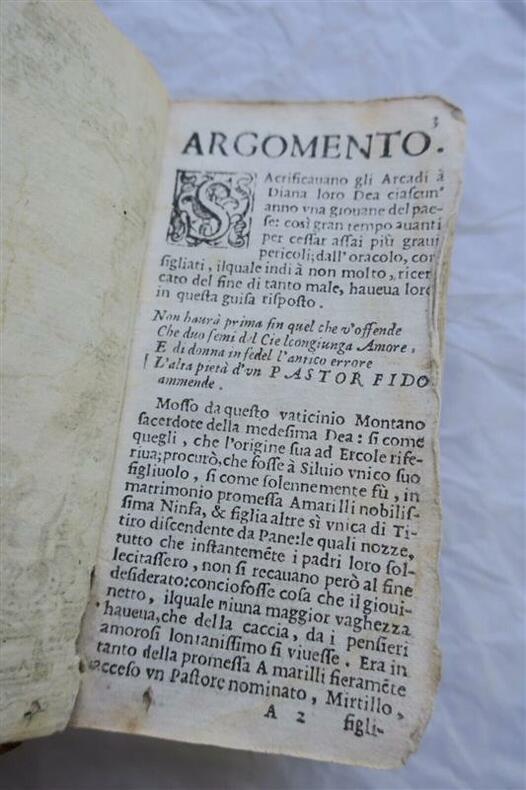 3
ARGOMENTO.
SAcrificauano gli Arcadi à
Diana loro Dea ciascun'
anno vna giouane del pae-
se: così gran tempo auanti
per cessar assai più graui
pericoli; dall'oracolo, con
sigliati, ilquale indi à non molto, ricer
cato del fine di tanto male, haueua loro
in questa guisa risposto.
Non haurà prima fin quel che v'offende
Che duo semi del Ciel congiunga Amore,
E di donna infedel l'antico errore
L'alta pietà d'vn PASTOR FIDO
ammende.
Mosso da questo vaticinio Montano
sacerdote della medesima Dea: si come
quegli, che l'origine sua ad Ercole rife-
riua; procurò, che fosse à Siluio vnico suo
figliuolo, si come solennemente fù, in
matrimonio promessa Amarilli nobilis-
sima Ninfa, & figlia altre sì vnica di Ti-
tiro discendente da Pane: le quali nozze,
tutto che instantemēte i padri loro sol-
lecitassero, non si recauano però al fine
desiderato: conciofosse cosa che il gioui-
netto, ilquale niuna maggior vaghezza
haueua, che della caccia, da i pensieri
amorosi lontanissimo si viuesse. Era in
tanto della promessa Amarilli fieramēte
acceso vn Pastore nominato, Mirtillo,
A 2 figli-